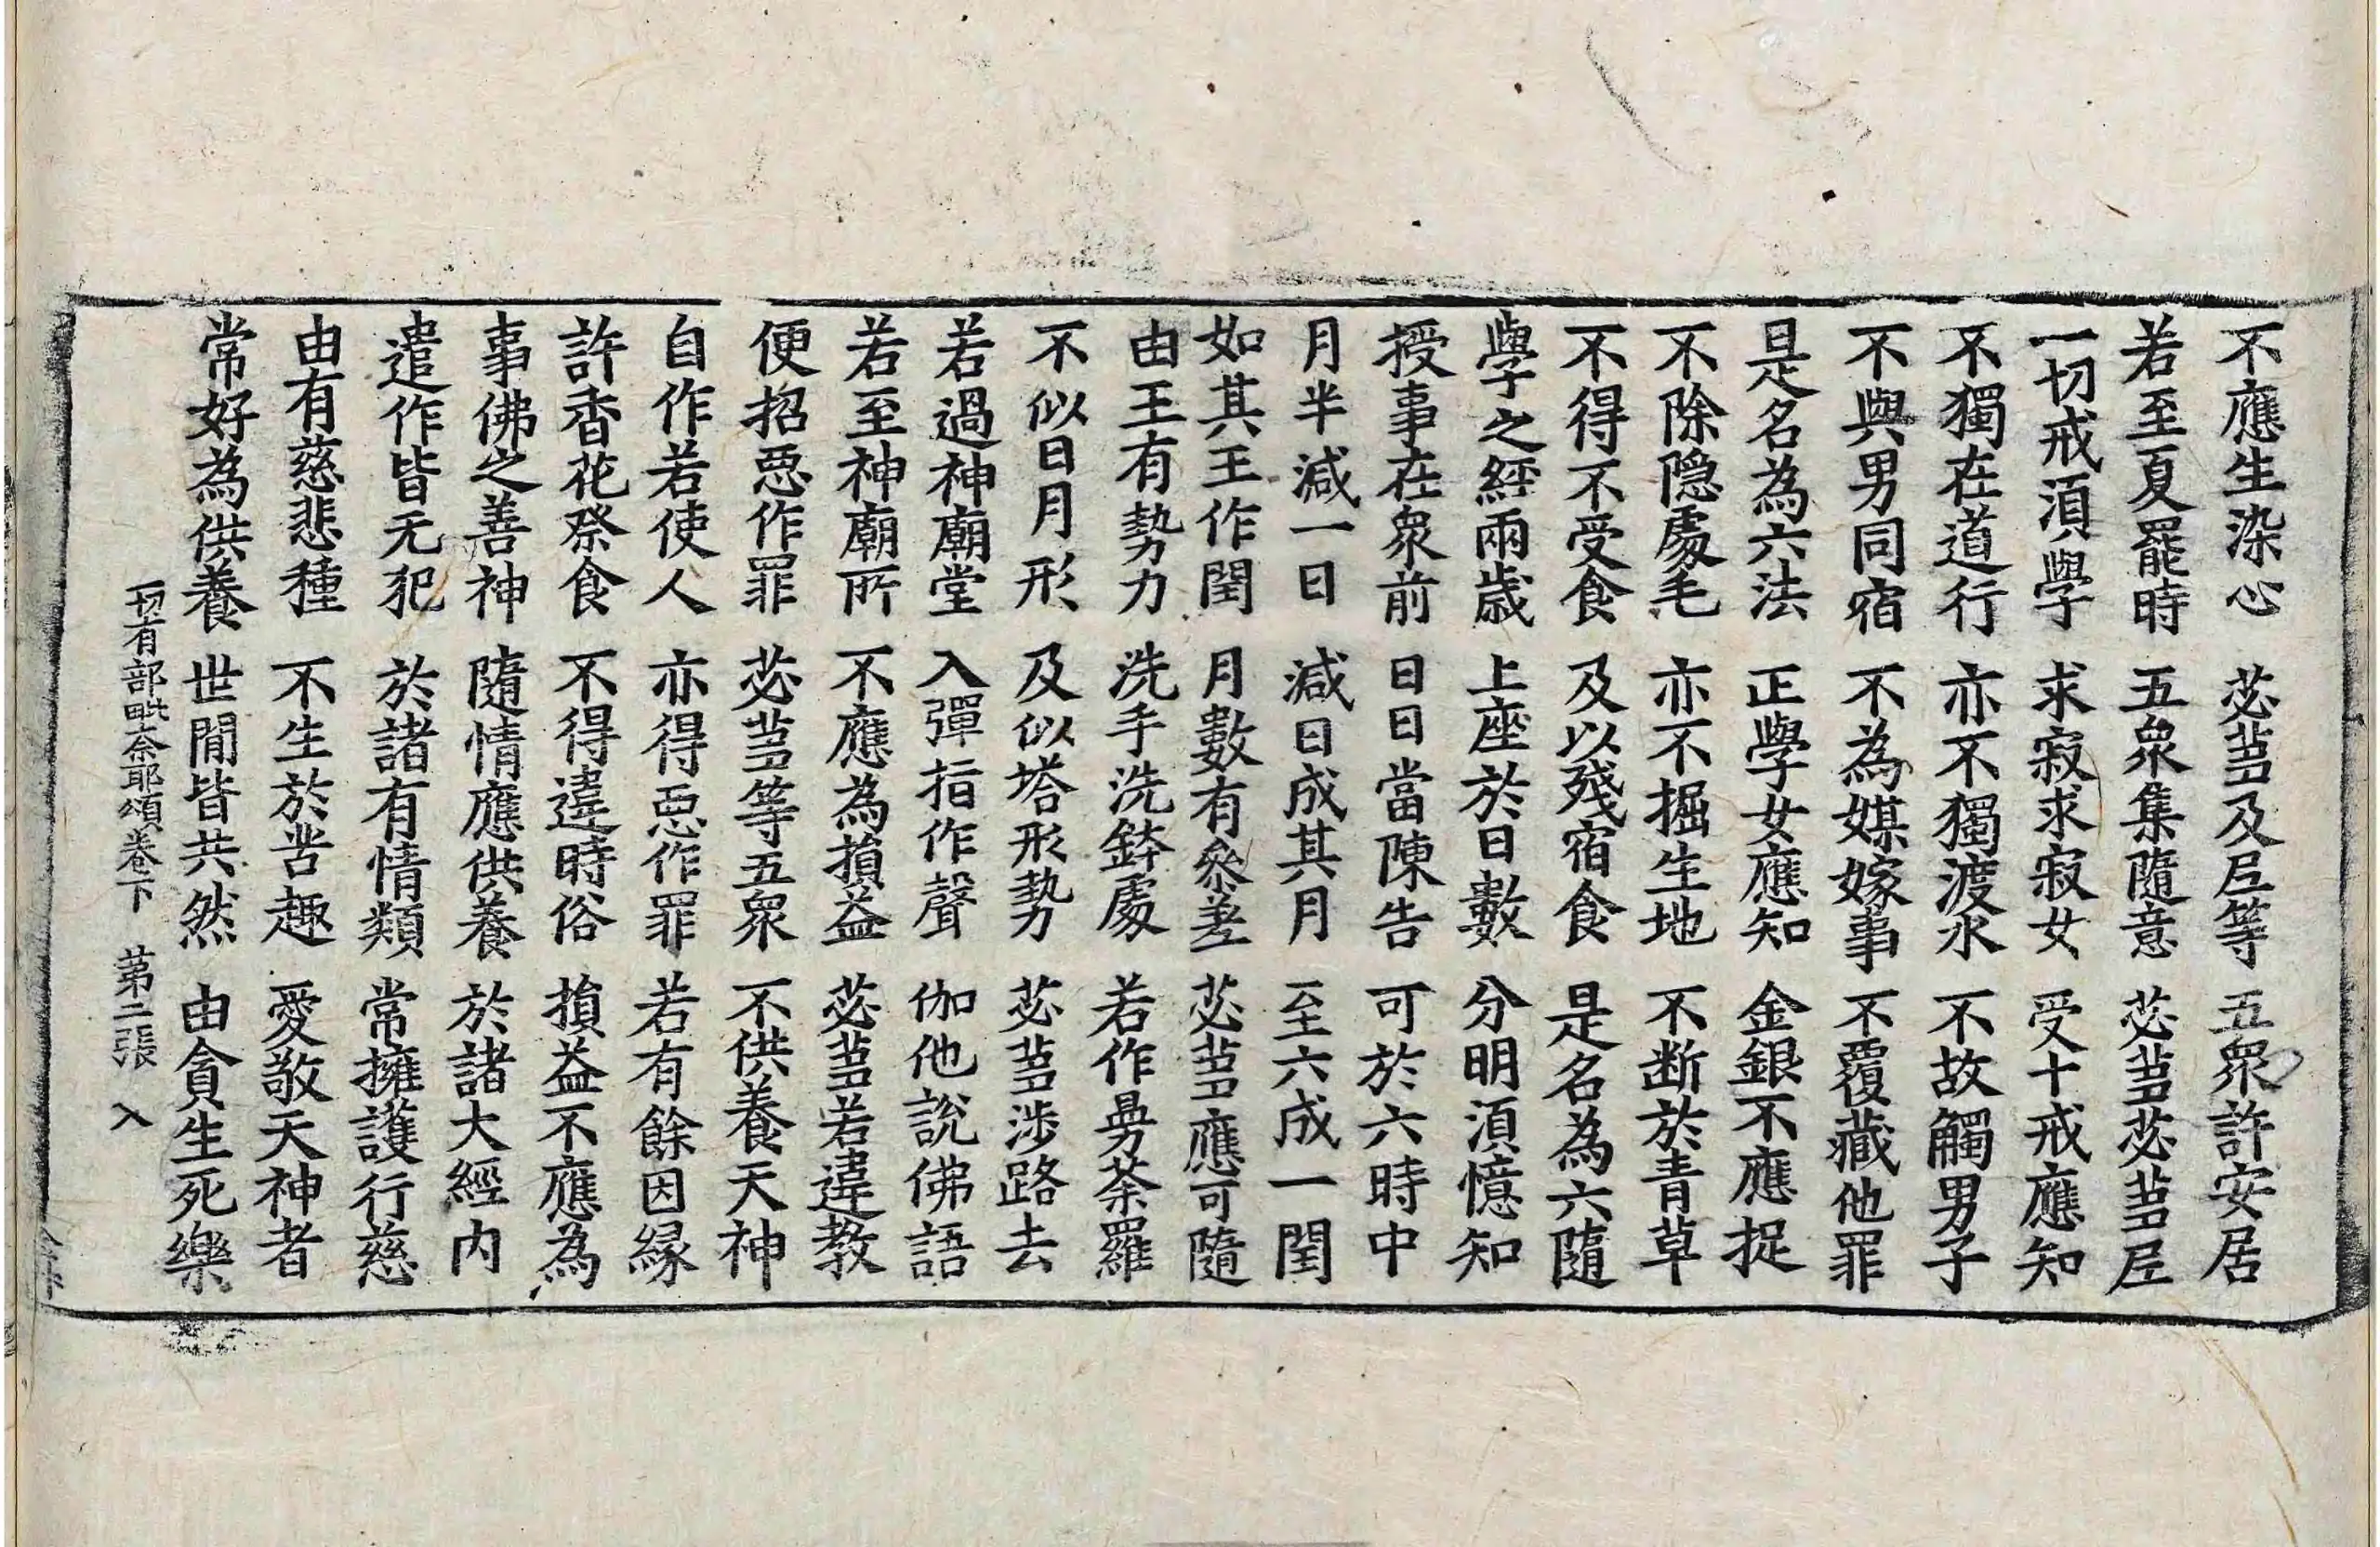 不應生染心 苾蒭及尼等 五衆許安居
若至夏罷時 五衆集隨意 苾蒭苾蒭尼
一切戒湏學 求寂求寂女 受十戒應知
不獨在道行 亦不獨渡水 不故觸男子
不與男同宿 不為媒嫁事 不覆藏他罪
是名為六法 正學女應知 金銀不應捉
不除隠處毛 亦不掘生地 不断於青草
不得不受食 及以殘宿食 是名為六隨
學之經兩歳 上座於日數 分明湏憶知
授事在衆前 日日當陳告 可於六時中
月半減一日 減日成其月 至六成一閏
如其王作閏 月數有叅差 苾蒭應可隨
由王有勢力 洗手洗鉢處 若作曼荼羅
不似日月形 及似塔形勢 苾蒭涉路去
若過神廟堂 入彈指作聲 伽他說佛語
若至神廟所 不應為損益 苾蒭若違教
便招惡作罪 苾蒭等五衆 不供養天神
自作若使人 亦得惡作罪 若有餘因縁
許香花祭食 不得違時俗 損益不應為
事佛之善神 隨情應供養 於諸大經内
遣作皆无犯 於諸有情類 常擁護行慈
由有慈悲種 不生於苦趣 愛敬天神者
常好為供養 世間皆共然 由貪生死樂
一切有部毗奈耶頌卷下 第二張 入